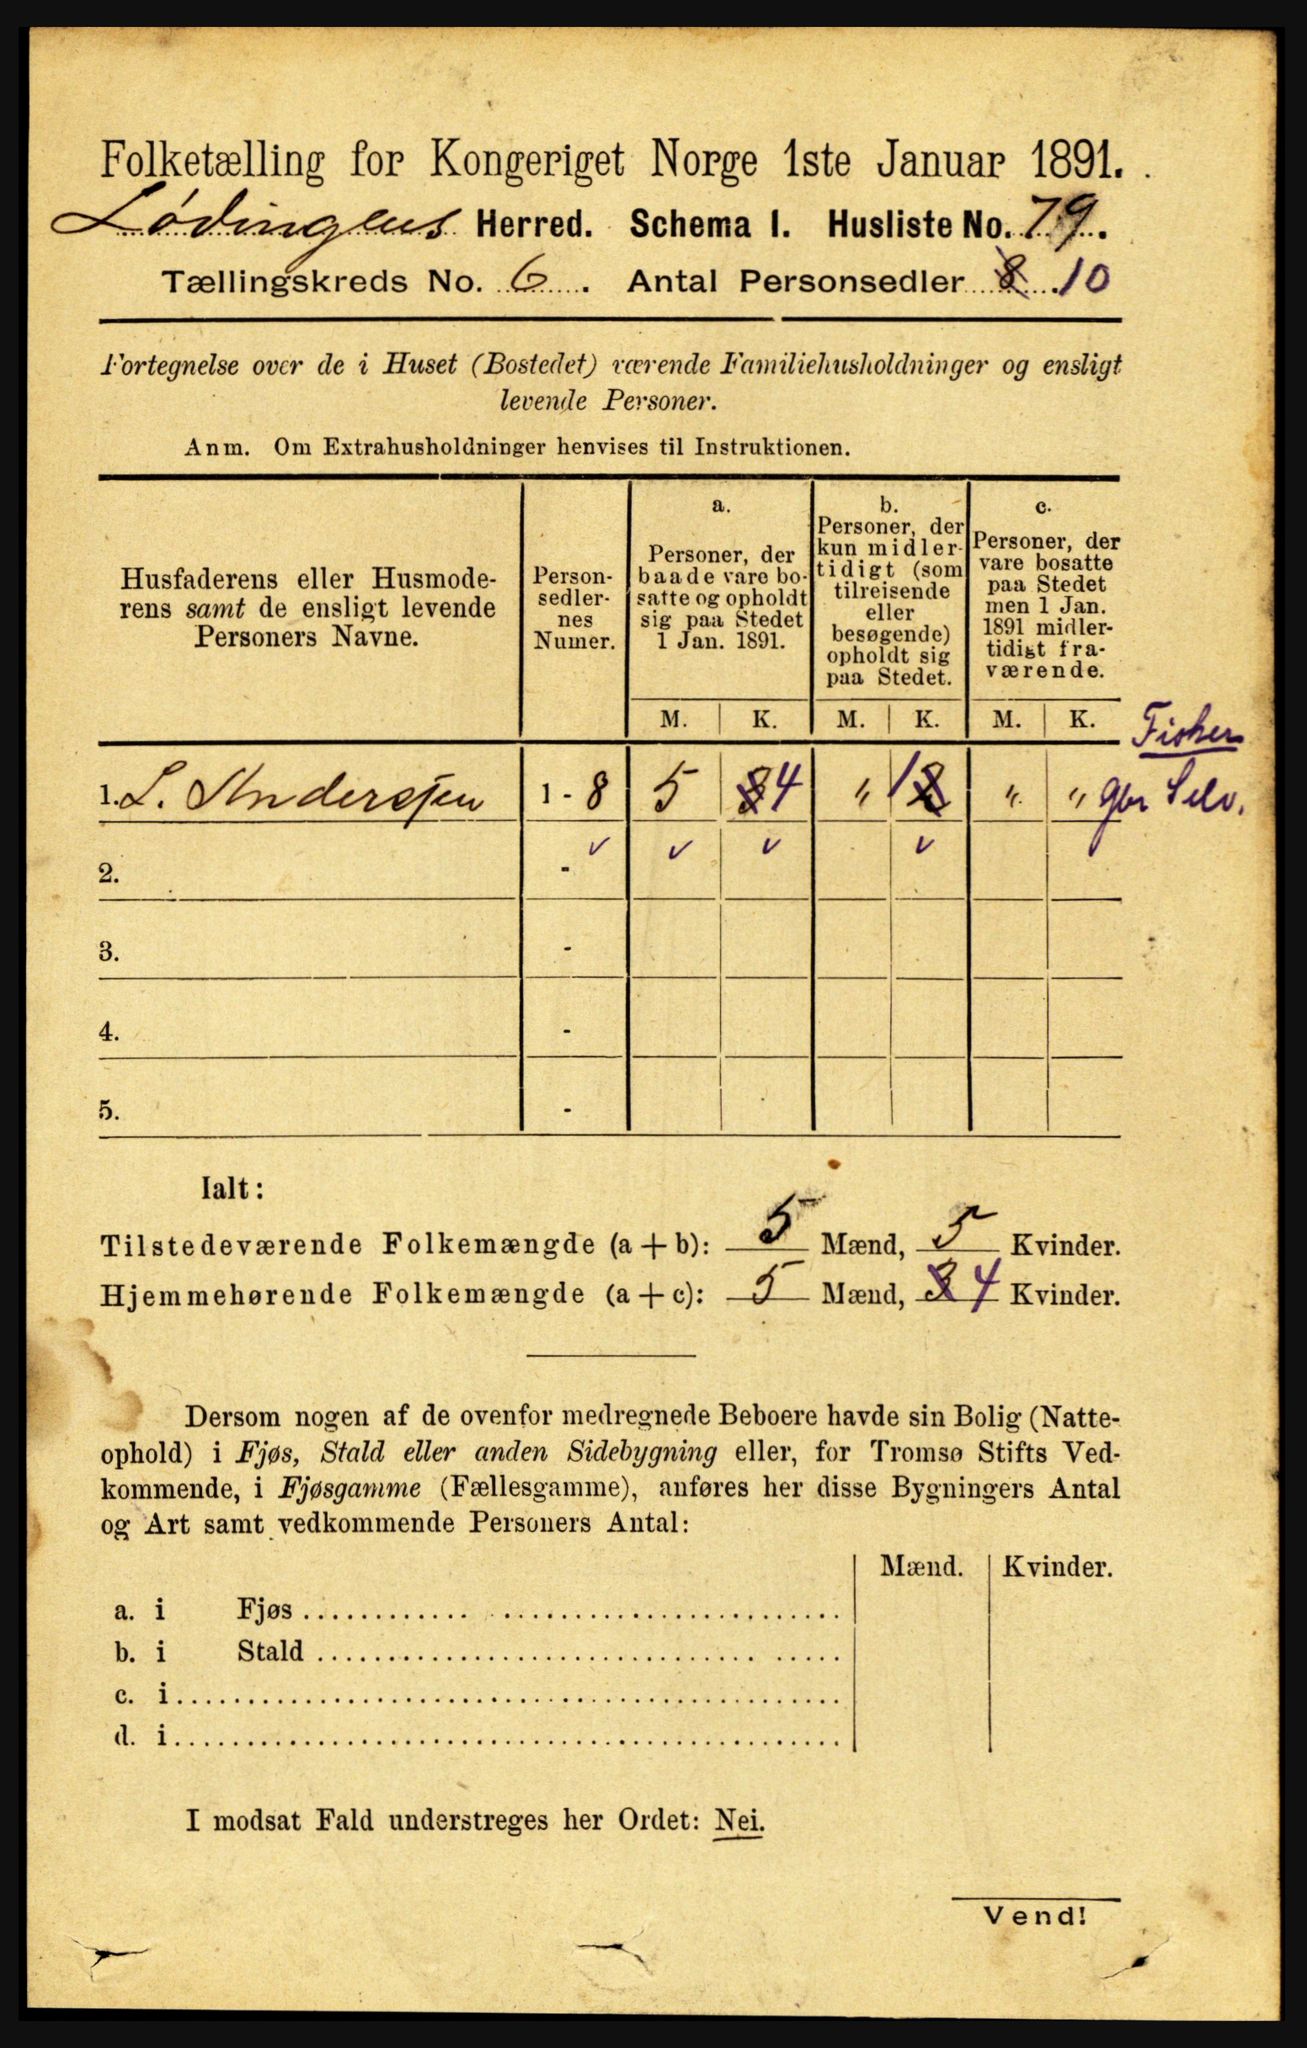 Folketælling for Kongeriget Norge 1ste Januar 1891.
Lødingens Herred. Schema I. Husliste No. 79.
Tællingskreds No. 6. Antal Personsedler 8 10
Fortegnelse over de i Huset (Bostedet) værende Familiehusholdninger og ensligt
levende Personer.
Anm. Om Extrahusholdninger henvises til Instruktionen.
Husfaderens eller Husmode-
rens samt de ensligt levende
Personers Navne.
Person-
sedler-
nes
Numer.
a.
Personer, der
baade vare bo-
satte og opholdt
sig paa Stedet
1 Jan. 1891.
b.
Personer, der
kun midler-
tidigt (som
tilreisende
eller
besøgende)
opholdt sig
paa Stedet.
c.
Personer, der
vare bosatte
paa Stedet
men 1 Jan.
1891 midler-
tidigt fra-
værende.
M. K. M. K. M. K.
Fisker
1. L. Anderssen 1 - 8 5 3 4 " 1 2 " " Gbr Selv.
2. -
3. -
4. -
5. -
Ialt:
Tilstedeværende Folkemængde (a + b): 5 Mænd, 5 Kvinder.
Hjemmehørende Folkemængde (a + c): 5 Mænd, 3 4 Kvinder.
Dersom nogen af de ovenfor medregnede Beboere havde sin Bolig (Natte-
ophold) i Fjøs, Stald eller anden Sidebygning eller, for Tromsø Stifts Ved-
kommende, i Fjøsgamme (Fællesgamme), anføres her disse Bygningers Antal
og Art samt vedkommende Personers Antal:
Mænd. Kvinder.
a. i Fjøs
b. i Stald
c. i
d. i
I modsat Fald understreges her Ordet: Nei.
Vend!